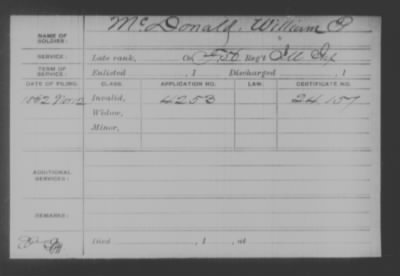 NAME OF SOLDIER: McDonald, William P
SERVICE: Late rank, Co. F, 50 Reg't Ill Inf
TERM OF SERVICE: Enlisted , 1 Discharged , 1
DATE OF FILING. CLASS. APPLICATION NO. LAW. CERTIFICATE NO.
1862 Nov 12 Invalid, 4253 24,157
Widow,
Minor,
ADDITIONAL SERVICES:
REMARKS:
Died , 1 , at